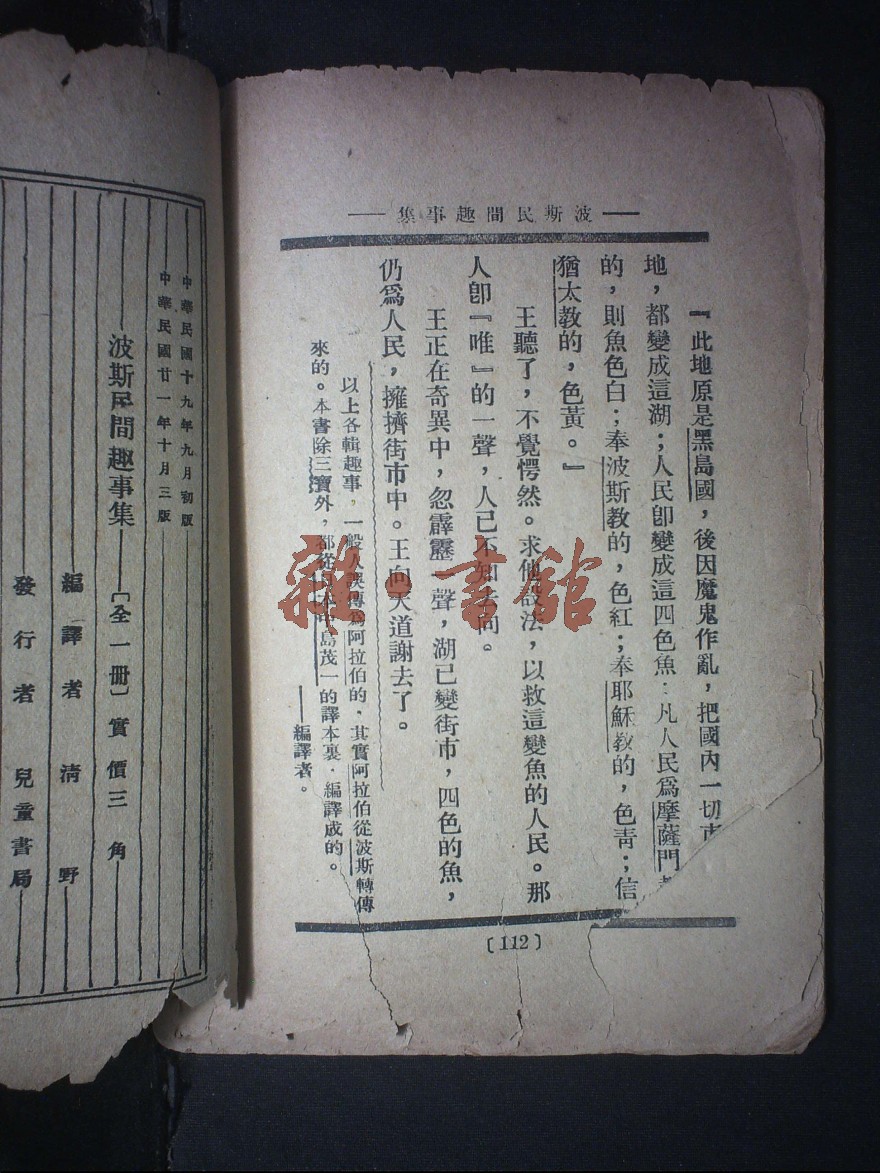 波斯民間趣事集
『此地原是黑島國，後因魔鬼作亂，把國內一切市
地，都變成這湖；人民卽變成這四色魚：凡人民爲摩薩門
的，則魚色白；奉波斯教的，色紅；奉耶穌教的，色靑；信
猶太教的，色黃。』
王聽了，不覺愕然。求他設法，以救這變魚的人民。那
人卽『唯』的一聲，人已不知去向。
王正在奇異中，忽霹靂一聲，湖已變街市，四色的魚，
仍爲人民，擁擠街市中。王向天道謝去了。
以上各輯趣事，一般人誤傳爲阿拉伯的，其實阿拉伯從波斯轉傳
來的。本書除三寶外，都從日本中島茂一的譯本裏，編譯成的。
——編譯者。
〔112〕
中華民國十九年九月初版
中華民國廿一年十月三版
波斯民間趣事集——〔全一册〕實價三角
編譯者 淸野
發行者 兒童書局
雜·書館